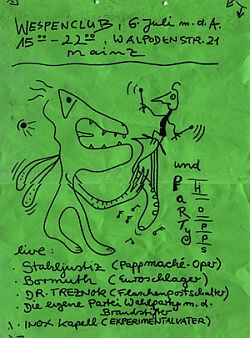 WESPENCLUB, 6. Juli m.d.A.
15⁰⁰-22⁰⁰, WALPODENSTR. 21
mainz
und
PARTY
HOPPS
live:
· Stahljustiz (Pappmaché-Oper)
· Bormuth (Euroschlager)
· DR. TREZNOK (Flaschenpostschalter)
· Die eigene Partei Wahlparty m.d.
Brandstifter
· INOX Kapell (EXPERIMENTALVATER)